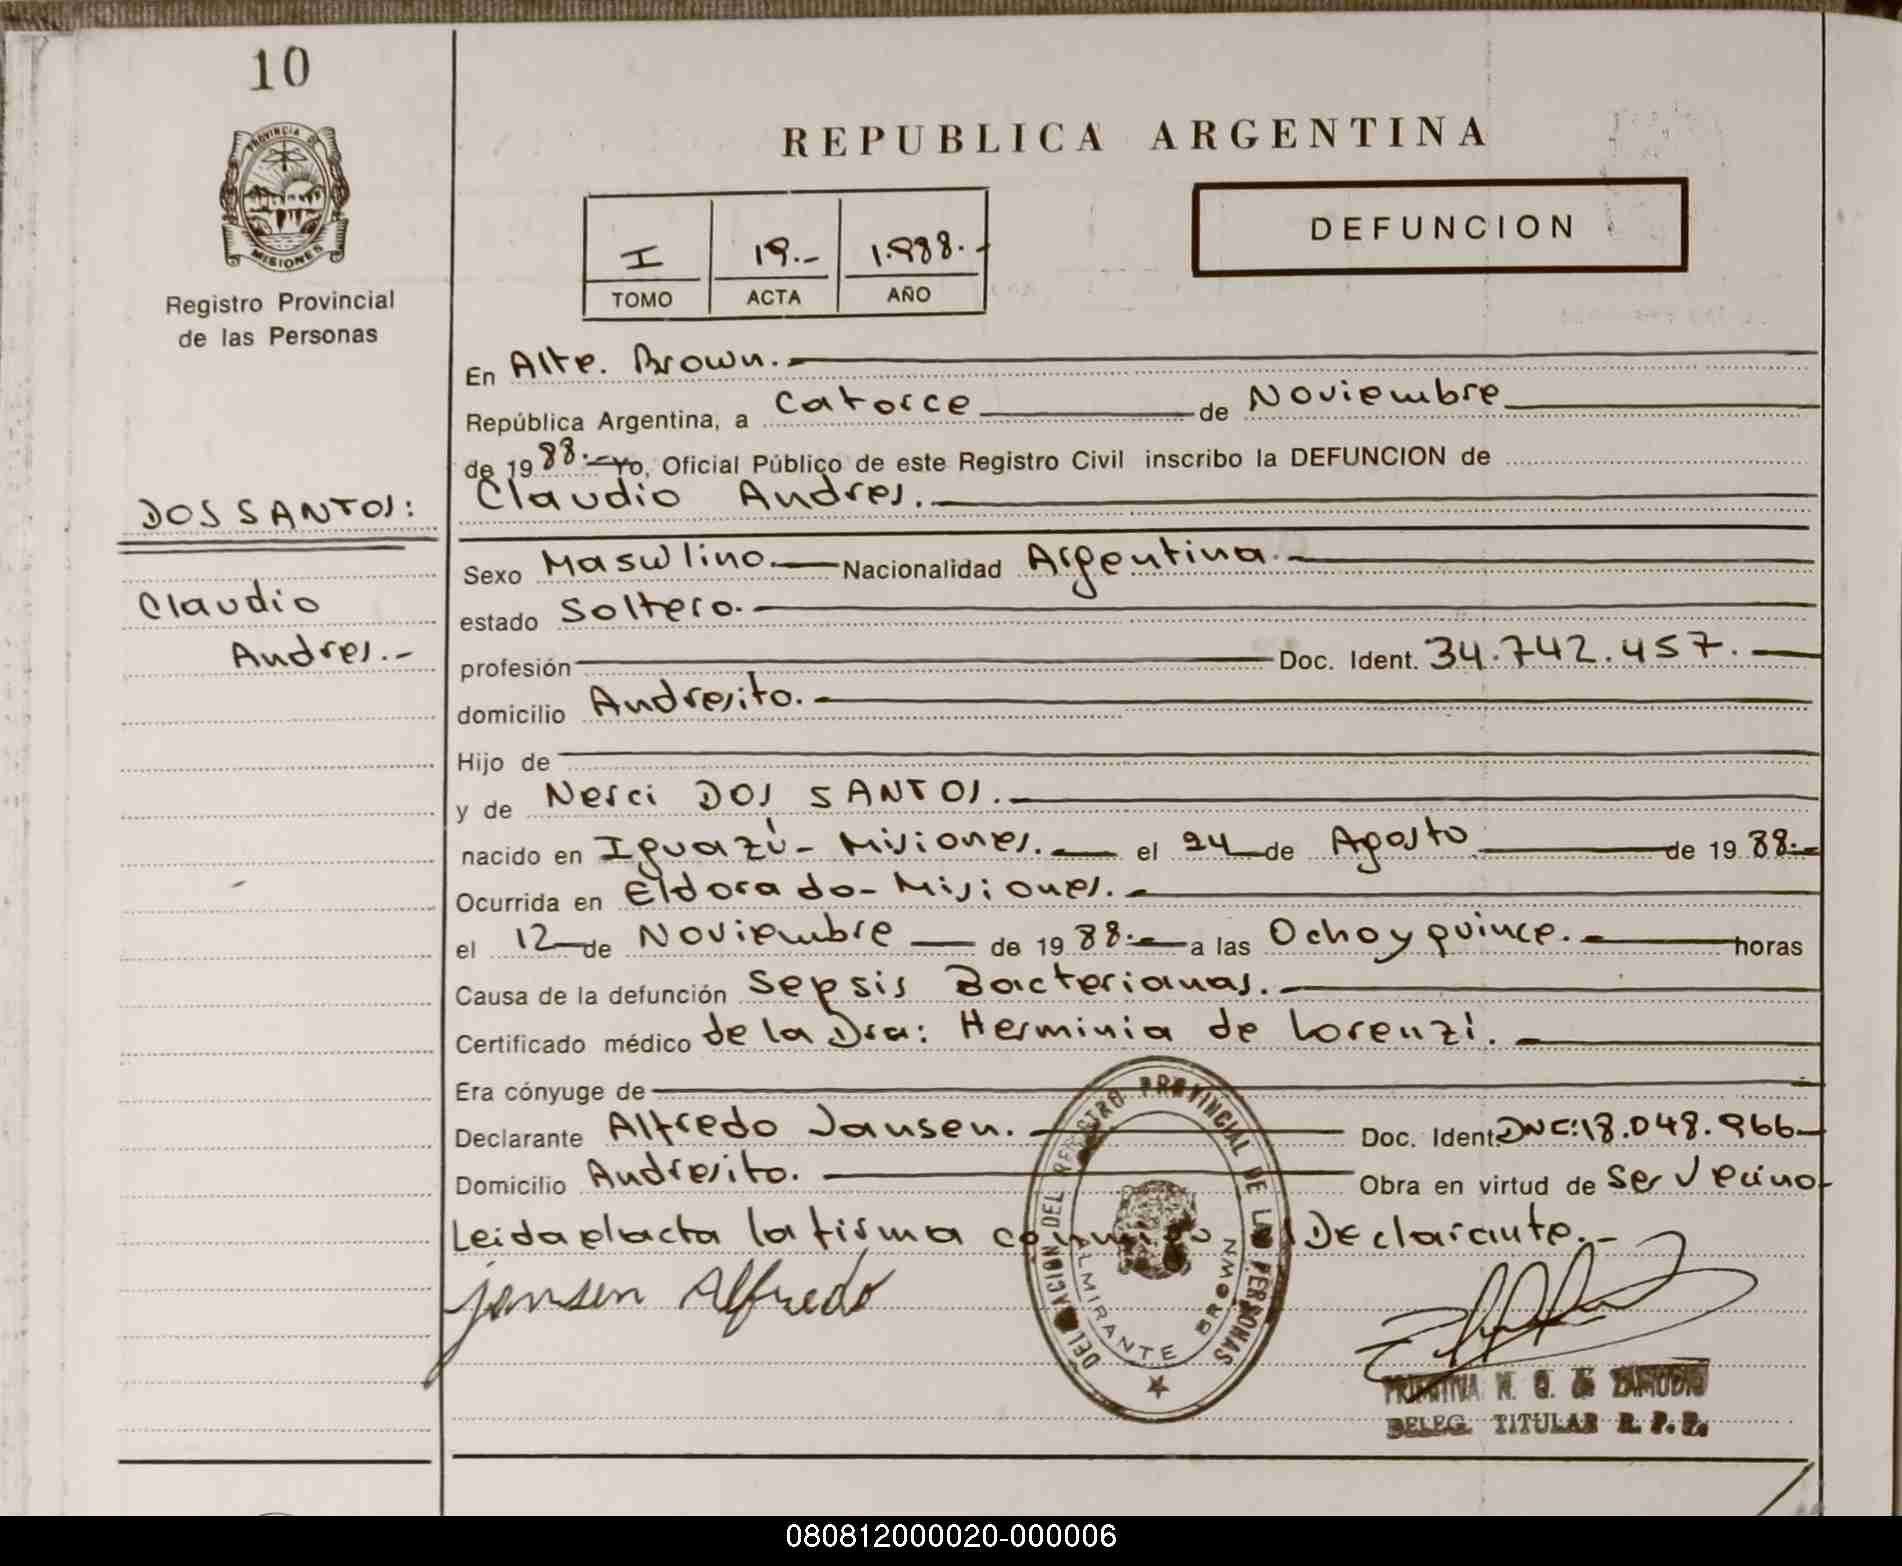 10
PROVINCIA DE
MISIONES
Registro Provincial
de las Personas
REPUBLICA ARGENTINA
I 19.- 1.988.-
TOMO ACTA AÑO
DEFUNCION
En Alte. Brown.
República Argentina, a Catorce de Noviembre
de 19 88.- Yo, Oficial Público de este Registro Civil inscribo la DEFUNCION de
Claudio Andres.
DOS SANTOS:
Claudio
Andres.-
Sexo Masculino. Nacionalidad Argentina.
estado Soltero.
profesión Doc. Ident. 34.742.457.
domicilio Andresito.
Hijo de
y de Nerci DOS SANTOS.
nacido en Iguazú- Misiones. el 24 de Agosto de 19 88.-
Ocurrida en Eldorado- Misiones.
el 12 de Noviembre de 19 88.- a las Ocho y quince. horas
Causa de la defunción Sepsis Bacterianas.
Certificado médico de la Dra: Herminia de Lorenzi.
Era cónyuge de
Declarante Alfredo Jansen. Doc. Ident DNC:18.048.966
Domicilio Andresito. Obra en virtud de Ser Vecino
Leida el acta la firma conmigo el Declarante.-
Jansen Alfredo
DELEGACION DEL REGISTRO PROVINCIAL DE LAS PERSONAS
ALMIRANTE BROWN
N. G. de ZAMUDIO
DELEG. TITULAR R. P. P.
080812000020-000006